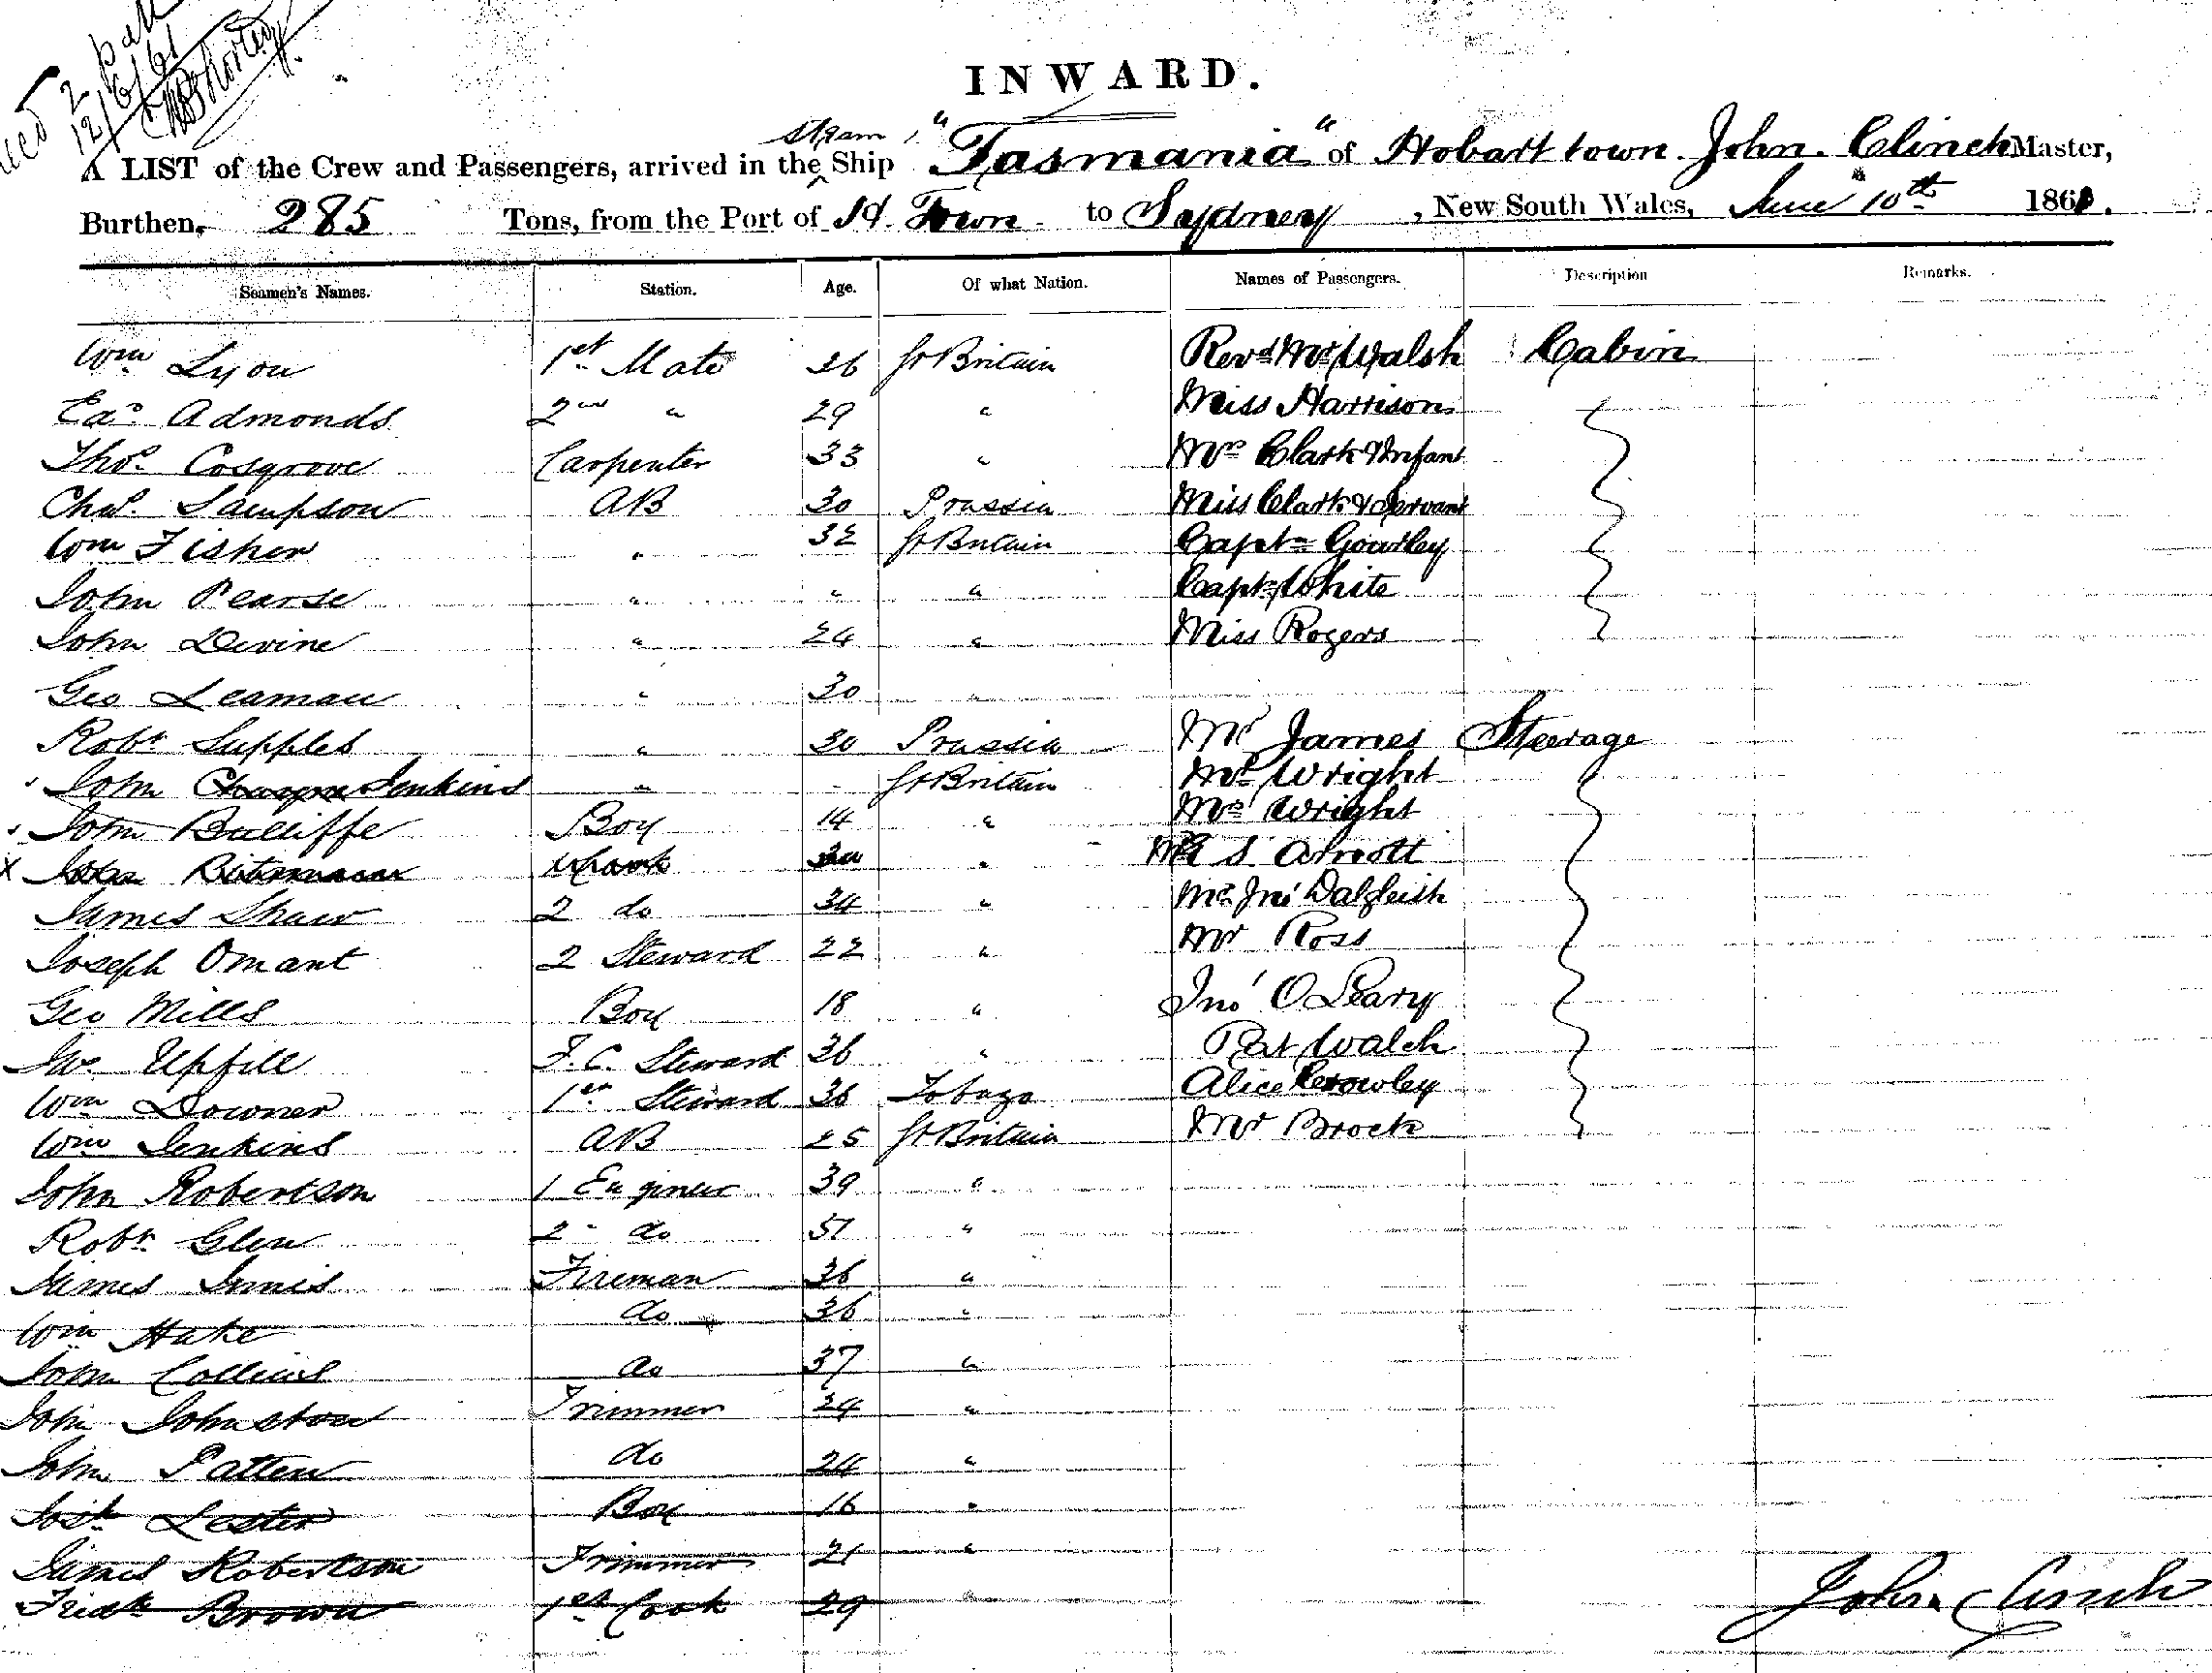 2
12/6/61
INWARD.
A LIST of the Crew and Passengers, arrived in the ^ steam Ship "Tasmania" of Hobart town. John. Clinch Master,
Burthen, 285 Tons, from the Port of H. Town to Sydney, New South Wales, June 10th 1861.
Seamen's Names. Station. Age. Of what Nation. Names of Passengers. Description Remarks.
Wm Lyon 1st Mate 26 Gt Britain Revd Mr Walsh Cabin
Ed Admonds 2nd " 29 " Miss Harrison
Thos Cosgrove Carpenter 33 " Mrs Clark & Infant
Chas Sampson AB 30 Prussia Miss Clark & Servant
Wm Fisher " 32 Gt Britain Captn Gourley
John Pearse " " " Capt White
John Devine " 24 " Miss Rogers
Geo Leaman " 30 "
Robt Supples " 30 Prussia Mr James Steerage
John Jenkins " Gt Britain Mr Wright
John Balliffe Boy 14 " Mrs Wright
John " S Arnott
James Shaw 2 do 34 " Mr Jno Dalgleish
Joseph Omant 2 Steward 22 " Mr Ross
Geo Mills Boy 18 " Jno O Leary
Jas Upfill F. C. Steward 36 " Pat Walch
Wm Downer 1st Steward 36 Tobago Alice Crowley
Wm Jenkins AB 25 Gt Britain Mr Brock
John Robertson 1 Engineer 39 "
Robt Glen 2 " do 51 "
James Innis Fireman 36 "
Wm Hake do 36 "
John Collins do 37 "
John Johnston Trimmer 24 "
John Patten do 24 "
Josh Lester Boy 16 "
James Robertson Trimmer 21 "
Fredk Brown 1st Cook 29 "
John Clinch